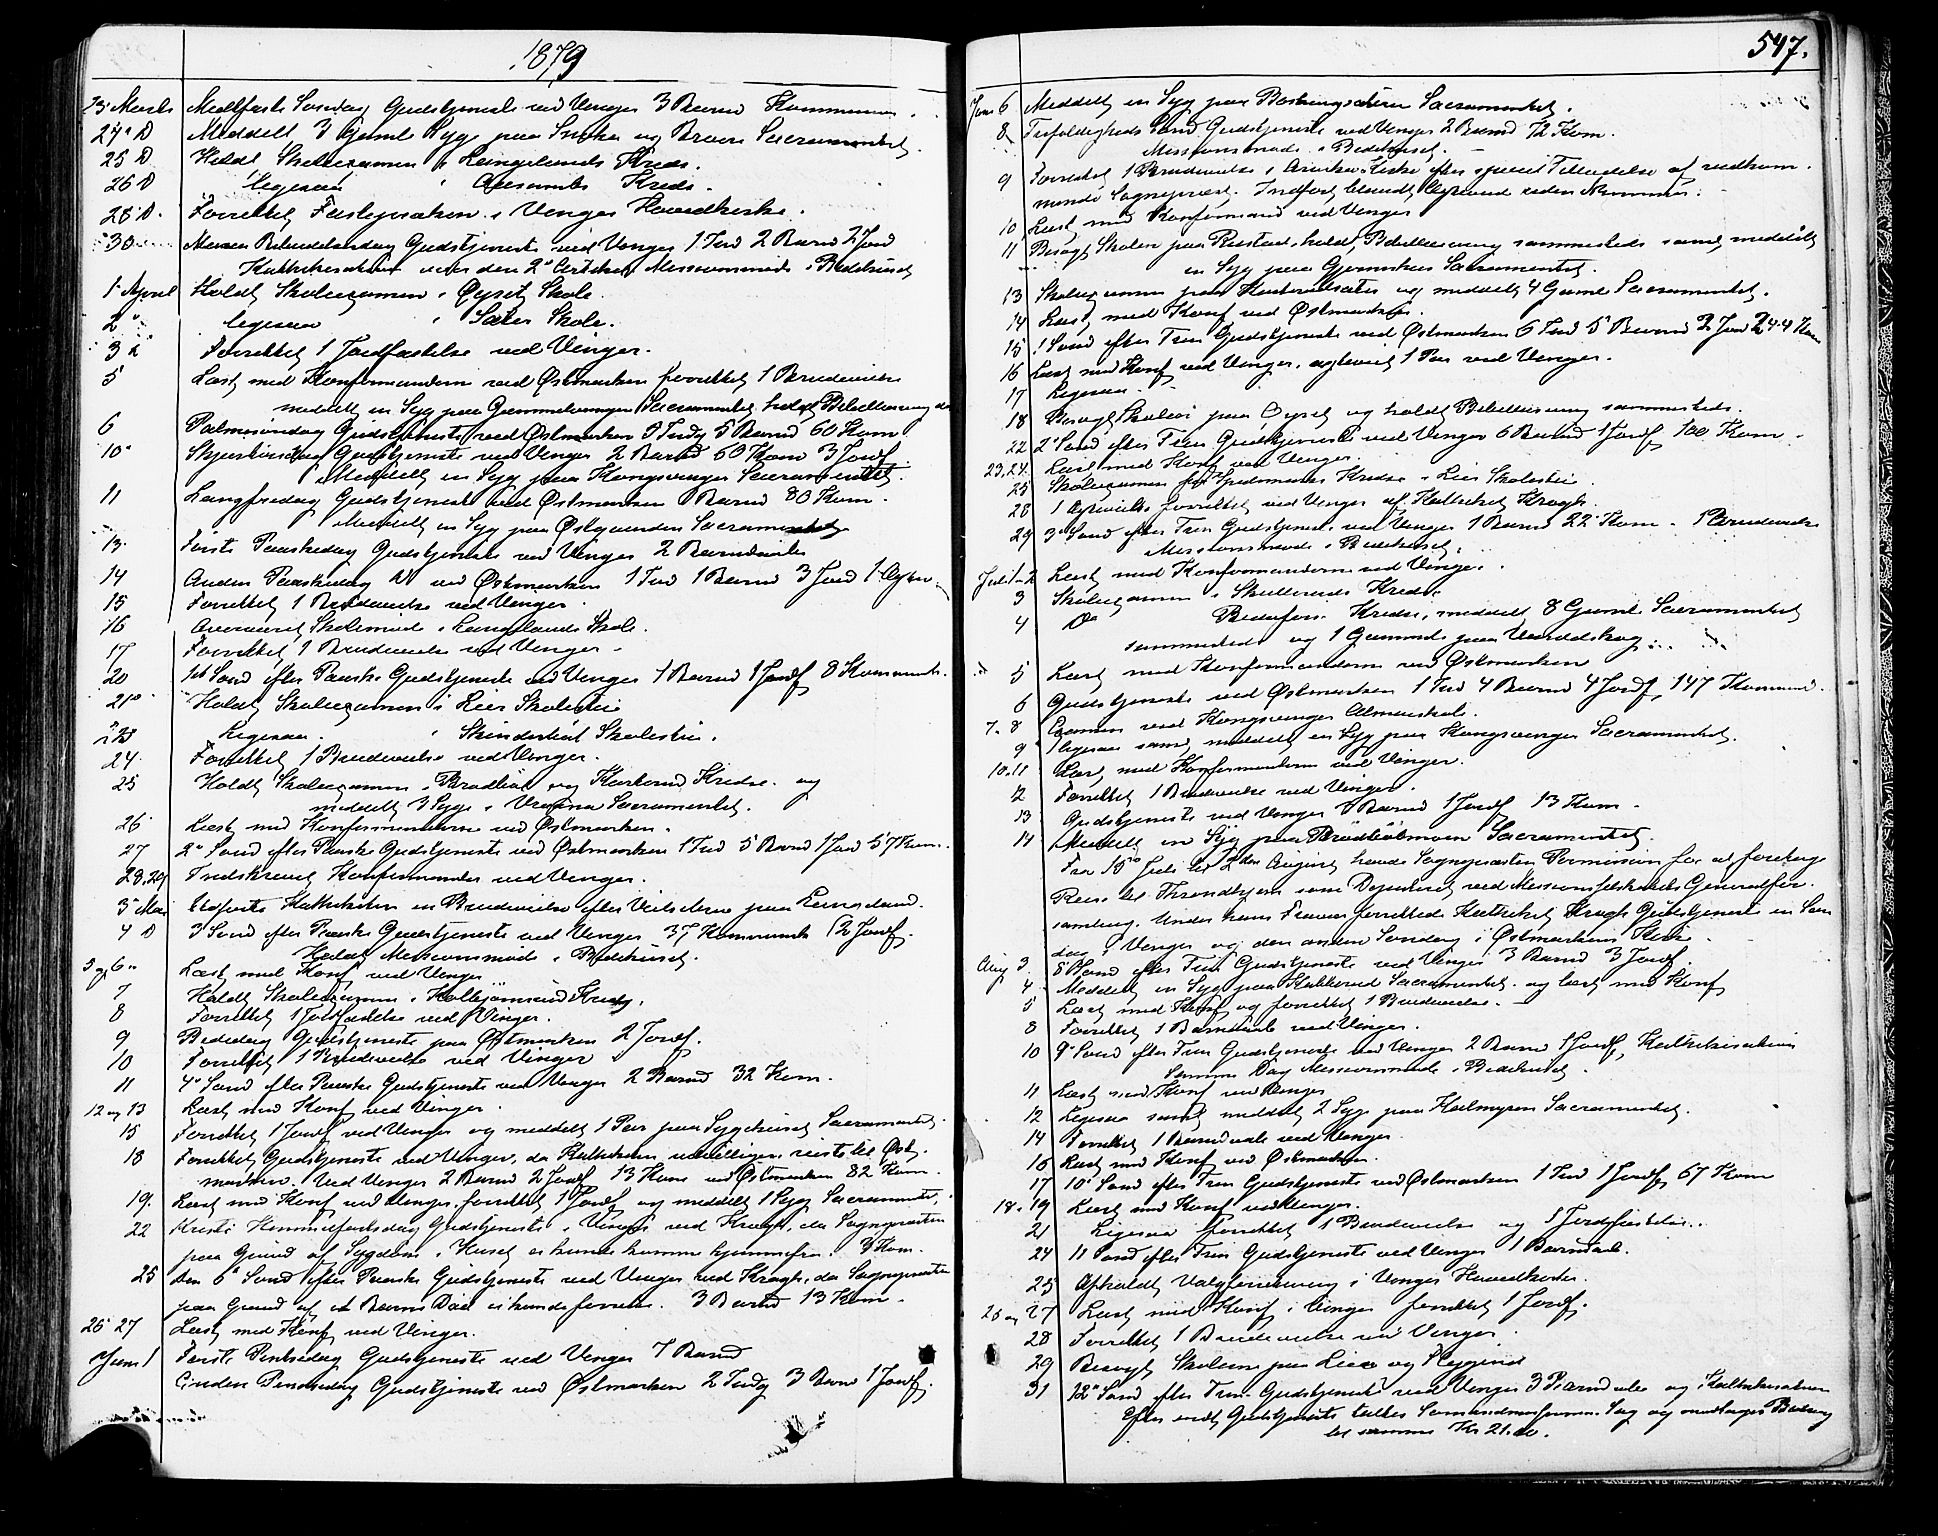 1879
23 Marts Midtfaste Søndag Gudstjeneste ved Vinger 3 Barnd
24 D Meddelt 3 Gamle Syge paa og Sacramentet.
25 D Holdt Skoleexamen i Langelands Kreds.
26 D Ligesaa i Kreds.
28 D. Forrettet Fastepræken i Vinger Hovedkirke.
30 Mariæ Bebudelsesdag Gudstjeneste ved Vinger 1 Ind 2 Barnd 2 Jord
Missionsmøde i Bedehuset
1 April Holdt Skoleexamen i Øyset Skole.
2 " Ligesaa i Sæter Skole.
3 " Forrettet 1 Jordfæstelse ved Vinger.
5 Læst med Konfirmanderne ved Østmarken forrettet 1 Brudevielse
meddelt en Syg paa Sacramentet holdt Bibellæsning
6 Palmesøndag Gudstjeneste ved Østmarken 5 Indg 5 Barnd 60 Kom
10 Skjærtorsdag Gudstjeneste ved Vinger 2 Barnd 60 Kom 3 Jordf
Meddelt en Syg paa Kongsvinger Sacramentet.
11 Langfredag Gudstjeneste ved Østmarken Barnd 80 Kom.
Meddelt en Syg paa Sacramentet
13 Første Paaskedag Gudstjeneste ved Vinger 2 Barndaab
14 Anden Paaskedag D ved Østmarken 1 Ind 1 Barnd 3 Jord 1
15 Forrettet 1 Brudevielse ved Vinger.
16 Overværet Skolemøde i Langelands Skole.
17 Forrettet 1 Brudevielse ved Vinger
20 1st Sønd efter Paaske Gudstjeneste ved Vinger 1 Barnd 1 Jordf 8
21 Holdt Skoleexamen i Lier Skolestue
23 Ligesaa i Skolestue.
24 Forrettet 1 Brudevielse ved Vinger.
25 Holdt Skoleexamen i og Kreds. og
meddelt 3 Syge i Sacramentet.
26 Læst med Konfirmanderne ved Østmarken.
27 2 Sønd efter Paaske Gudstjeneste ved Østmarken 1 Ind 5 Barnd 1 Jord 57 Kom.
28.29 Indskrevet Konfirmander ved Vinger.
3 Mai Kateketen en Brudevielse efter
4 D 3 Sønd efter Paaske Gudstjeneste ved Vinger 37 2 Jordf.
Holdt Missionsmøde i Bedehuset.
5 og 6 Læst med Konf ved Vinger
7 Holdt Skoleexamen i Kreds.
8 Forrettet 1 Jordfæstelse ved Vinger.
9 Bededag Gudstjeneste paa Østmarken 2 Jordf.
10 Forrettet 1 Brudevielse ved Vinger
11 4 Sønd efter Paaske Gudstjeneste ved Vinger 2 Barnd 32 Kom.
12 og 13 Læst med Konf ved Vinger.
15 Forrettet 1 Jordf ved Vinger og meddelt 1 Par paa Sygehuset Sacramentet.
18 Forrettet Gudstjeneste ved Vinger, da reiste til Øst-
marken. Ved Vinger 2 Barnd 2 Jordf 13 Kom ved Østmarken 82 Kom.
19. Læst med Konf ved Vinger, forrettet 1 Jordf og meddelt 1 Syg Sacramentet.
22 Kristi Himmelfartsdag Gudstjeneste i Vinger ved Krogh, da Sognepresten
paa Grund af Sygdom i Huset ei kunde komme hjemmefra. 3 Kom.
25 Den 6 Sønd efter Paaske Gudstjeneste ved Vinger ved Krogh, da Sognepresten
paa Grund af et Barns Død ei kunde forrette. 3 Barnd 13 Kom.
26 27 Læst med Konf ved Vinger.
Juni 1 Første Pintsedag Gudstjeneste ved Vinger 7 Barnd
Anden Pintsedag Gudstjeneste ved Østmarken 2 Indg 3 Barnd 1 Jordf.
547.
Juni 6 Meddelt en Syg paa Sacramentet.
8 Trefoldigheds Sønd Gudstjeneste ved Vinger 2 Barnd 72 Kom.
Missionsmøde i Bedehuset.
9 Forrettet 1 Brudevielse i Kirke efter speciel Tilladelse af vedkom-
mende Sogneprest. Indført blandt uden Nummer.
10 Læst med Konfirmand ved Vinger
11 Besøgt Skolen paa holdt Bibellæsning sammesteds samt meddelt
en Syg paa Sacramentet.
13 Skoleexamen paa og meddelt 4 Gamle Sacramentet.
14 Læst med Konf ved Østmarken.
15 1 Sønd efter Trin Gudstjeneste ved Østmarken 6 Ind 5 Barnd 2 Jord 244 Kom
16 Læst med Konf ved Vinger, 1 Par ved Vinger.
17 Ligesaa
18 Besøgt Skolen paa Øyset og holdt Bibellæsning sammesteds.
22 2 Sønd efter Trin Gudstjeneste ved Vinger 6 Barnd 1 Jordf 100 Kom
23.24. Læst med Konf ved Vinger.
25 Skoleexamen for Kreds i Lier Skolestue
28 1 forrettet ved Vinger af Krogh.
29 3 Sønd efter Trin Gudstjeneste ved Vinger 1 Barnd 22 Kom. 1 Brudevielse
Missionsmøde i Bedehuset.
Juli 1-2 Læst med Konfirmanderne ved Vinger.
3 Skoleexamen i Kreds
4 Do Kreds, meddelt 8 Gamle Sacramentet
sammesteds og 1 Gammel paa
5 Læst med Konfirmanderne ved Østmarken
6 Gudstjeneste ved Østmarken 1 Ind 4 Barnd 4 Jordf 147
7-8 Examen ved Kongsvinger Almueskole.
9 Ligesaa samt meddelt en Syg paa Kongsvinger Sacramentet.
10.11 Læst med Konfirmanderne ved Vinger.
12 Forrettet 1 Brudevielse ved Vinger
13 Gudstjeneste ved Vinger Barnd 1 Jordf 13 Kom.
14 Meddelt en Syg paa Sacramentet.
Fra 15 Juli til 2den August havde Sognepresten Permission for at foretage
Reise til Throndhjem som Deputeret ved Missionsselskabets Generalfor-
samling. Under hans Fravær forrettede Kateket Krogh Gudstjeneste en Søn-
dag i Vinger og den anden Søndag i Østmarkens Kirke
Aug 3. 8 Sønd efter Trin Gudstjeneste ved Vinger 3 Barnd 3 Jordf.
4 Meddelt en Syg paa Sacramentet. og læst med Konf
5 Læst med Konf og forrettet 1 Brudevielse.
8 Forrettet 1 Barnedaab ved Vinger.
10 9 Sønd efter Trin Gudstjeneste ved Vinger 2 Barnd 1 Jordf, Katekisation
Samme Dag Missionsmøde i Bedehuset.
11 Læst med Konf ved Vinger
12 Ligesaa samt meddelt 2 Syge paa Sacramentet.
14 Forrettet 1 Barnedaab ved Vinger.
16 Læst med Konf ved Østmarken.
17 10 Sønd efter Trin Gudstjeneste ved Østmarken 1 Ind 1 Jordf 67 Kom
18.19 Læst med Konf ved Vinger.
21 Ligesaa forrettet 1 Brudevielse og 1 Jordfæstelse.
24 11 Sønd efter Trin Gudstjeneste ved Vinger 1 Barndaab.
25 Afholdt Valgforretning i Vinger Hovedkirke.
26 og 27 Læst med Konf i Vinger forrettet 1 Jordf.
28 Forrettet 1 Brudevielse ved Vinger
29 Besøgt Skolerne paa Lier og
31 12 Sønd efter Trin. Gudstjeneste ved Vinger 3 Barndaab og Katekisation
Efter endt Gudstjeneste Sag og modtages Bidrag
til samme Kr 21.00.